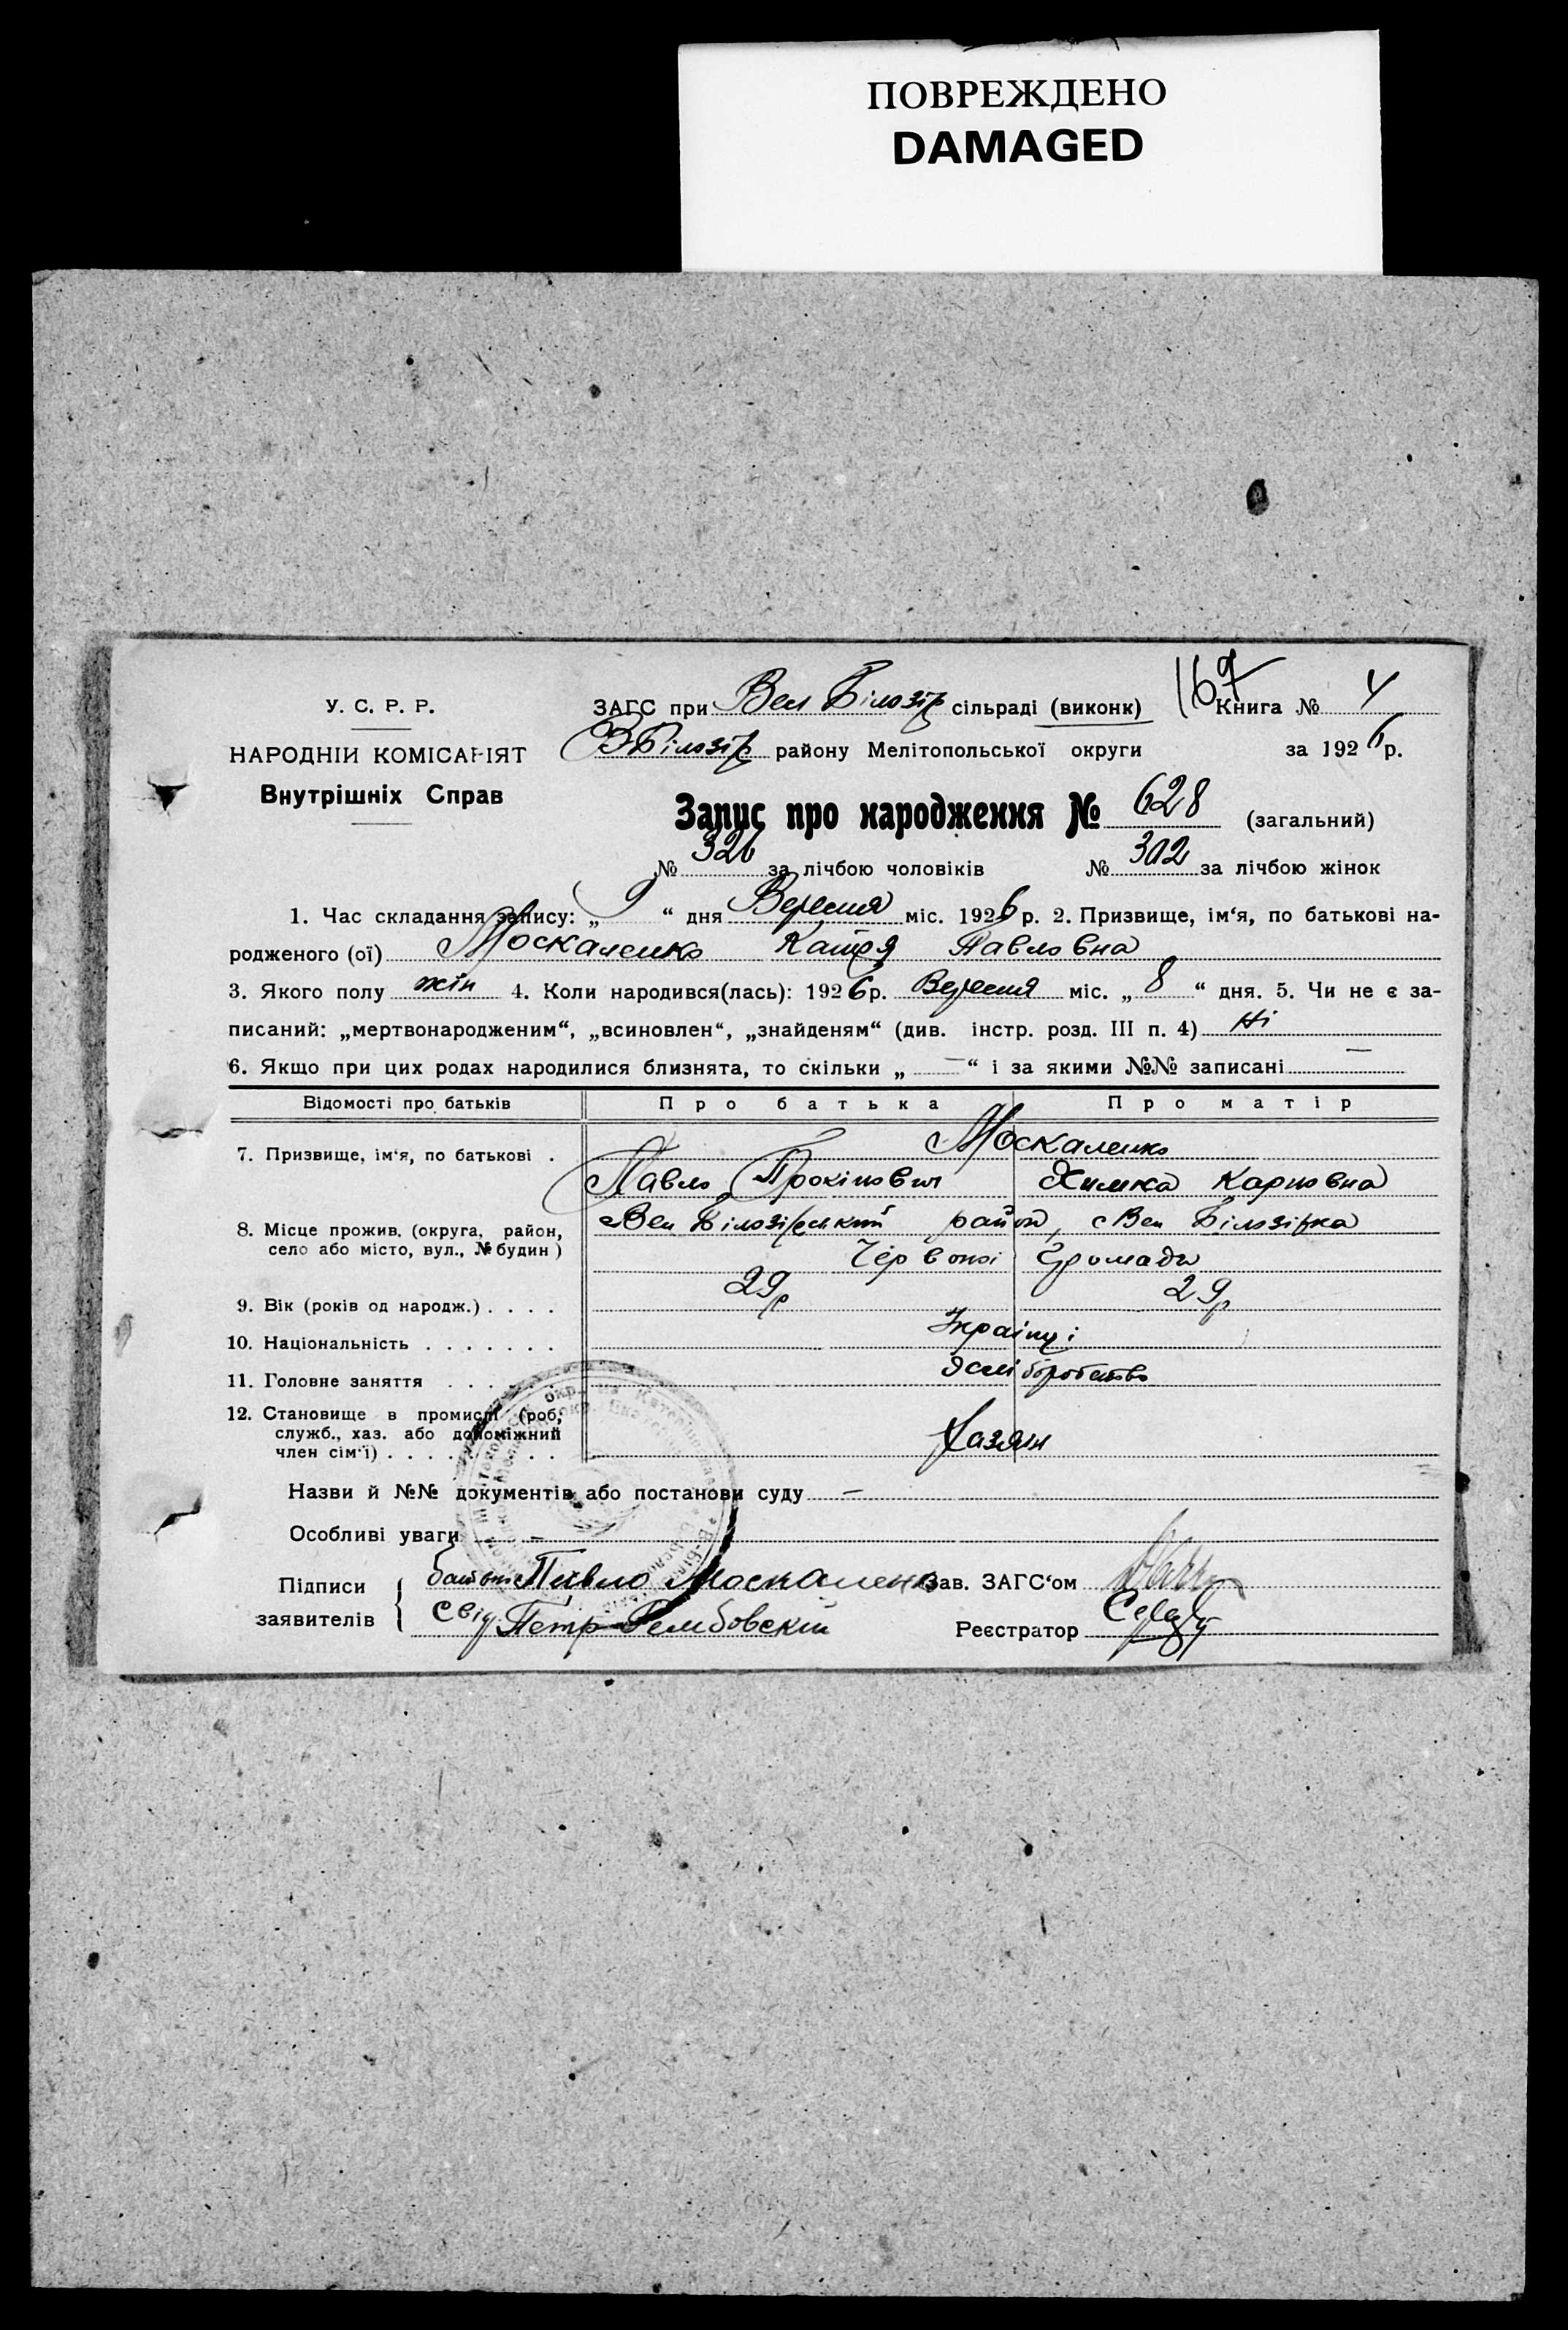 ПОВРЕЖДЕНО
DAMAGED
У. С. Р. Р.
НАРОДНІЙ КОМІСАРІЯТ
Внутрішніх Справ
ЗАГС при Вел Білозір сільраді (виконк) 167 Книга № 4
В Білозір району Мелітопольської округи за 1926 р.
Запис про народження № 628 (загальний)
№ 326 за лічбою чоловіків № 302 за лічбою жінок
1. Час складання запису: „ 9 “ дня Вересня міс. 1926 р. 2. Призвище, ім‘я, по батькові на-
родженого (ої) Москаленко Катря Павловна
3. Якого полу жін 4. Коли народився(лась): 1926 р. Вересня міс. „ 8 “ дня. 5. Чи не є за-
писаний: „мертвонародженим“, „всиновлен“, „знайденям“ (див. інстр. розд. III п. 4) Ні
6. Якщо при цих родах народилися близнята, то скільки „ — “ і за якими №№ записані —
Відомості про батьків Про батька Про матір
7. Призвище, ім‘я, по батькові . Москаленко
Павло Прокіпович Химка Карповна
8. Місце прожив. (округа, район, село або місто, вул., № будин) Вел Білозірський район, с Вел Білозірка
Червоної Громади
9. Вік (років од народж.) . . . . 29 р 29 р
10. Національність . . . . . . . Українці
11. Головне заняття . . . . . . хліборобство
12. Становище в промислі (роб, служб., хаз. або допоміжний член сім‘ї) . . . . . . . . . Хазяїн
Назви й №№ документів або постанови суду —
Особливі уваги —
Підписи заявителів { батько Павло Москаленко Зав. ЗАГС‘ом
Свід Петр Рембовскій Реєстратор